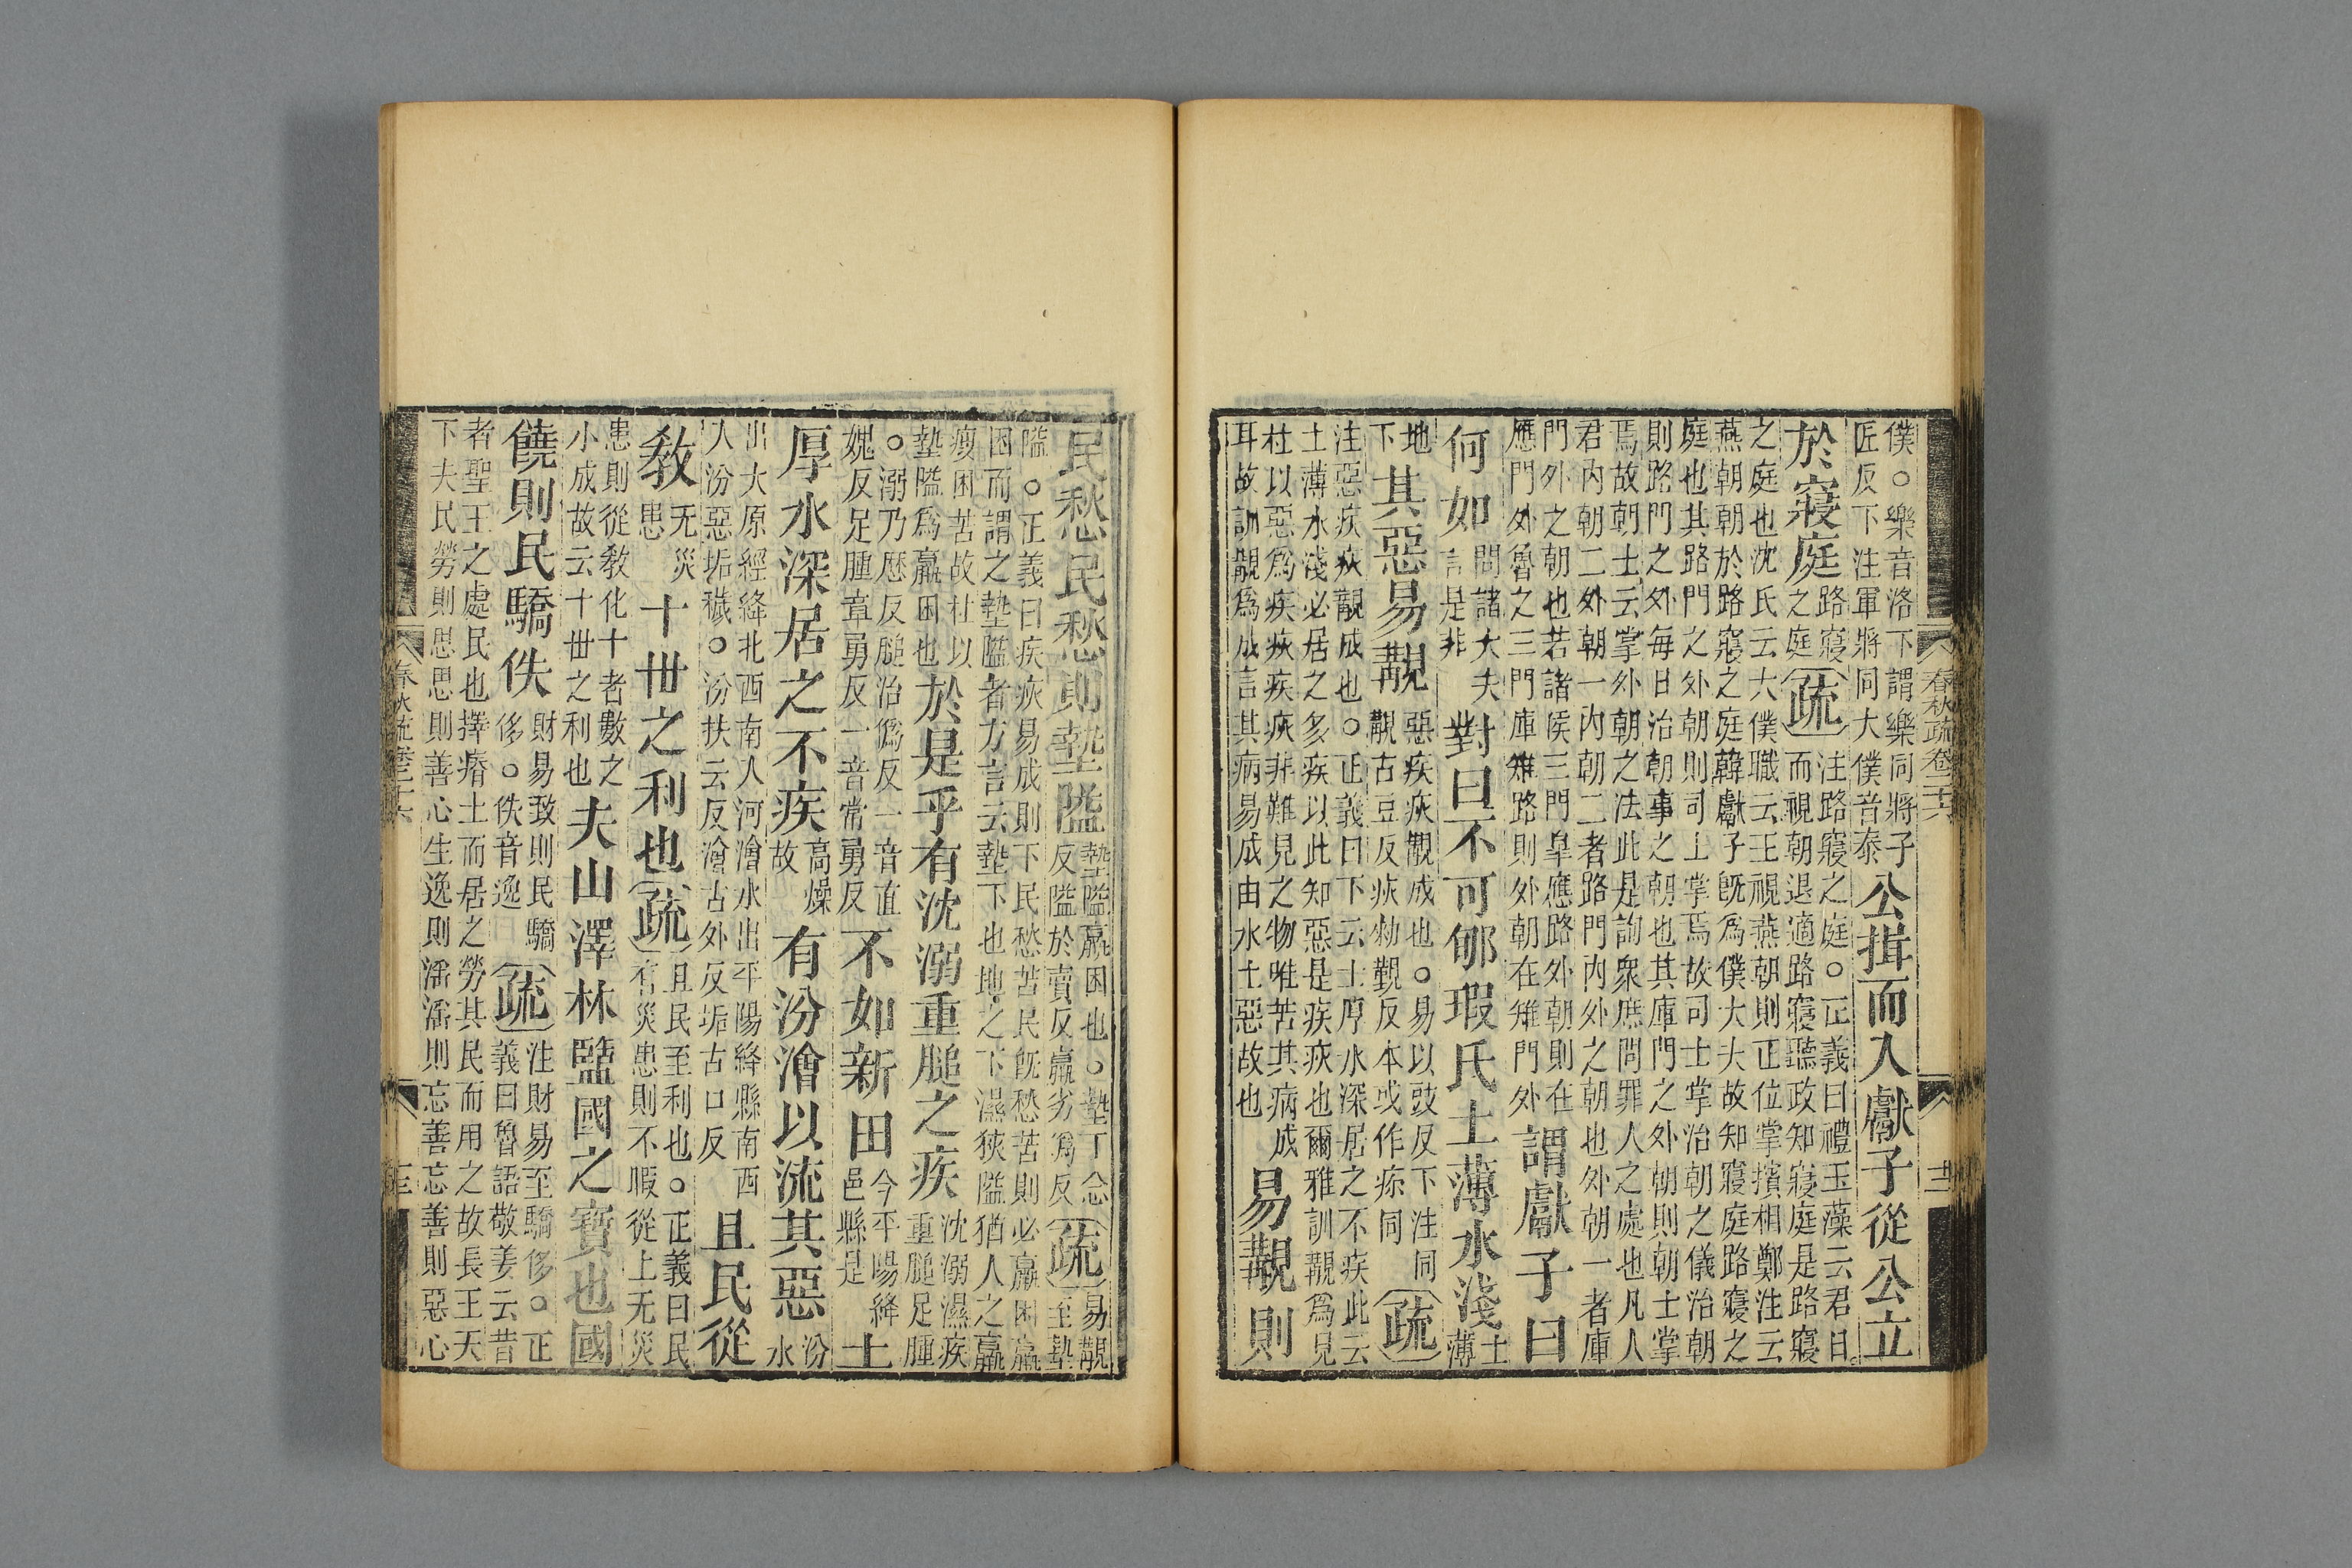 春秋疏卷二十六
僕。樂音洛下謂樂同將子匠反下注軍將同大僕音泰公揖而入獻子從公立
於寢庭路寢之庭疏注路寢之庭。正義曰禮玉藻云君日而視朝退適路寢聽政知寢庭是路寢
之庭也沈氏云大僕職云王視燕朝則正位掌擯相鄭注云
燕朝朝於路寢之庭韓獻子旣爲僕大夫故知寢庭路寢之
庭也其路門之外朝則司士掌焉故司士掌治朝之儀治朝
則路門之外每日治朝事之朝也其庫門之外朝則朝士掌
焉故朝士云掌外朝之法此是詢衆庶問罪人之處也凡人
君内朝二外朝一内朝二者路門内外之朝也外朝一者庫
門外之朝也若諸侯三門皐應路外朝則在應門外魯之三門庫雉路則外朝在雉門外謂獻子曰
何如問諸大夫言是非對曰不可郇瑕氏土薄水淺土薄
地下其惡易覯惡疾疢覯成也。易以豉反下注同覯古豆反疢勑覲反本或作疹同疏
注惡疾疢覯成也。正義曰下云土厚水深居之不疾此云
土薄水淺必居之多疾以此知惡是疾疢也爾雅訓覯爲見
杜以惡爲疾疢疾疢非難見之物唯苦其病成耳故訓覯爲成言其病易成由水土惡故也易覯則
民愁民愁則墊隘墊隘羸困也。墊丁念反隘於賣反羸劣爲反疏易覯至墊
隘。正義曰疾疢易成則下民愁苦民旣愁苦則必羸困羸
困而謂之墊隘者方言云墊下也地之下濕狹隘猶人之羸
瘦困苦故杜以墊隘爲羸困也於是乎有沈溺重膇之疾沈溺濕疾重膇足腫
。溺乃歷反膇治僞反一音直媿反足腫章勇反一音常勇反不如新田今平陽絳邑縣是土
厚水深居之不疾高燥故有汾澮以流其惡汾水
出大原經絳北西南人河澮水出平陽絳縣南西入汾惡垢穢。汾扶云反澮古外反垢古口反且民從
敎无災患十丗之利也疏且民至利也。正義曰民有災患則不暇從上无災
患則從敎化十者數之小成故云十丗之利也夫山澤林盬國之寶也國
饒則民驕佚財易致則民驕侈。佚音逸疏注財易至驕侈。正義曰魯語敬姜云昔
者聖王之處民也擇瘠土而居之勞其民而用之故長王天
下夫民勞則思思則善心生逸則滛滛則忘善忘善則惡心